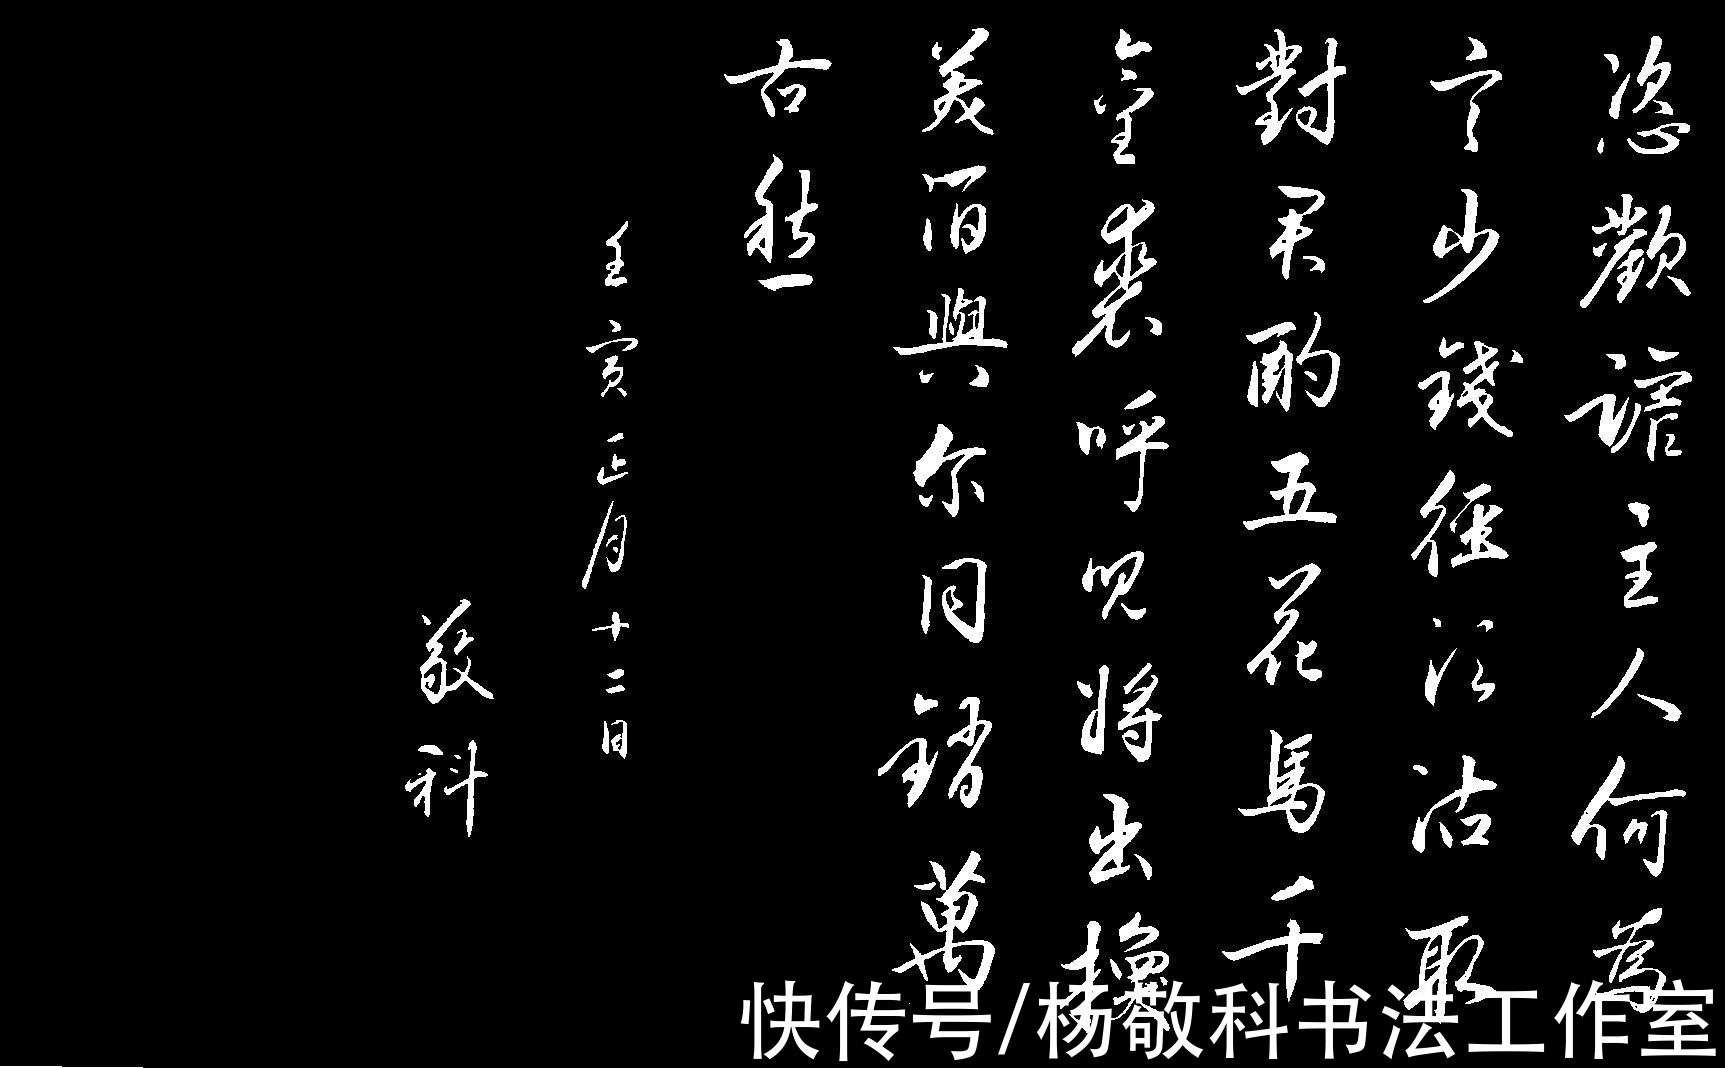 恣歡謔主人何為
言少錢徑須沽取
對君酌五花馬千
金裘呼兒將出換
美酒與尔同銷萬
古愁
壬寅正月十二日
敬科
快传号/杨敬科书法工作室